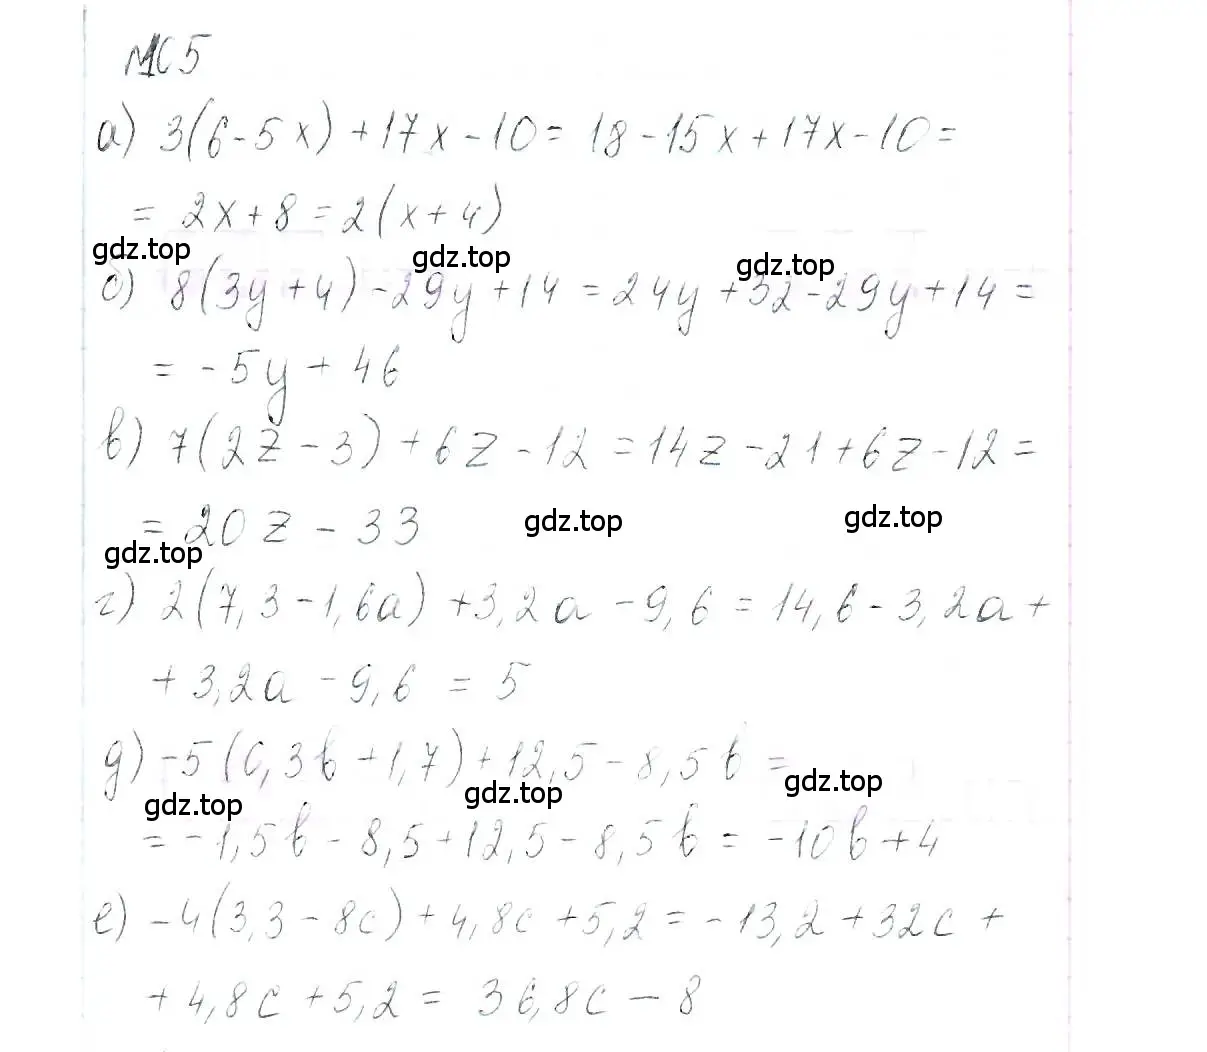 а) 3(6-5x)+17x-10=18-15x+17x-10=
=2x+8=2(x+4)
gdz.top gdz.top gdz.top
б) 8(3y+4)-29y+14=24y+32-29y+14=
=-5y+46
в) 7(2z-3)+6z-12=14z-21+6z-12=
=20z-33
gdz.top gdz.top gdz.top
г) 2(7,3-1,6a)+3,2a-9,6=14,6-3,2a+
+3,2a-9,6=5
д) -5(0,3b+1,7)+12,5-8,5b=
gdz.top gdz.top gdz.top
=-1,5b-8,5+12,5-8,5b=-10b+4
е) -4(3,3-8c)+4,8c+5,2=-13,2+32c+
+4,8c+5,2=36,8c-8